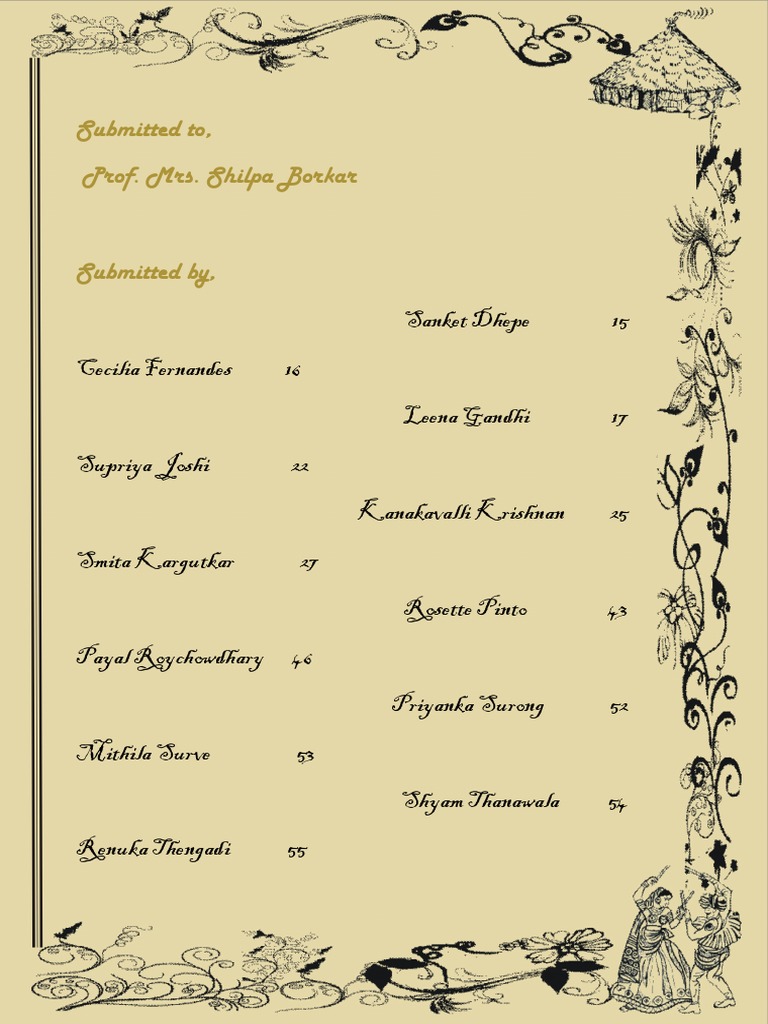 Submitted to,
Prof. Mrs. Shilpa Borkar
Submitted by,
Sanket Dhepe 15
Cecilia Fernandes 16
Leena Gandhi 17
Supriya Joshi 22
Kanakavalli Krishnan 25
Smita Kargutkar 27
Rosette Pinto 43
Payal Roychowdhary 46
Priyanka Surong 52
Mithila Surve 53
Shyam Thanawala 54
Renuka Thengadi 55